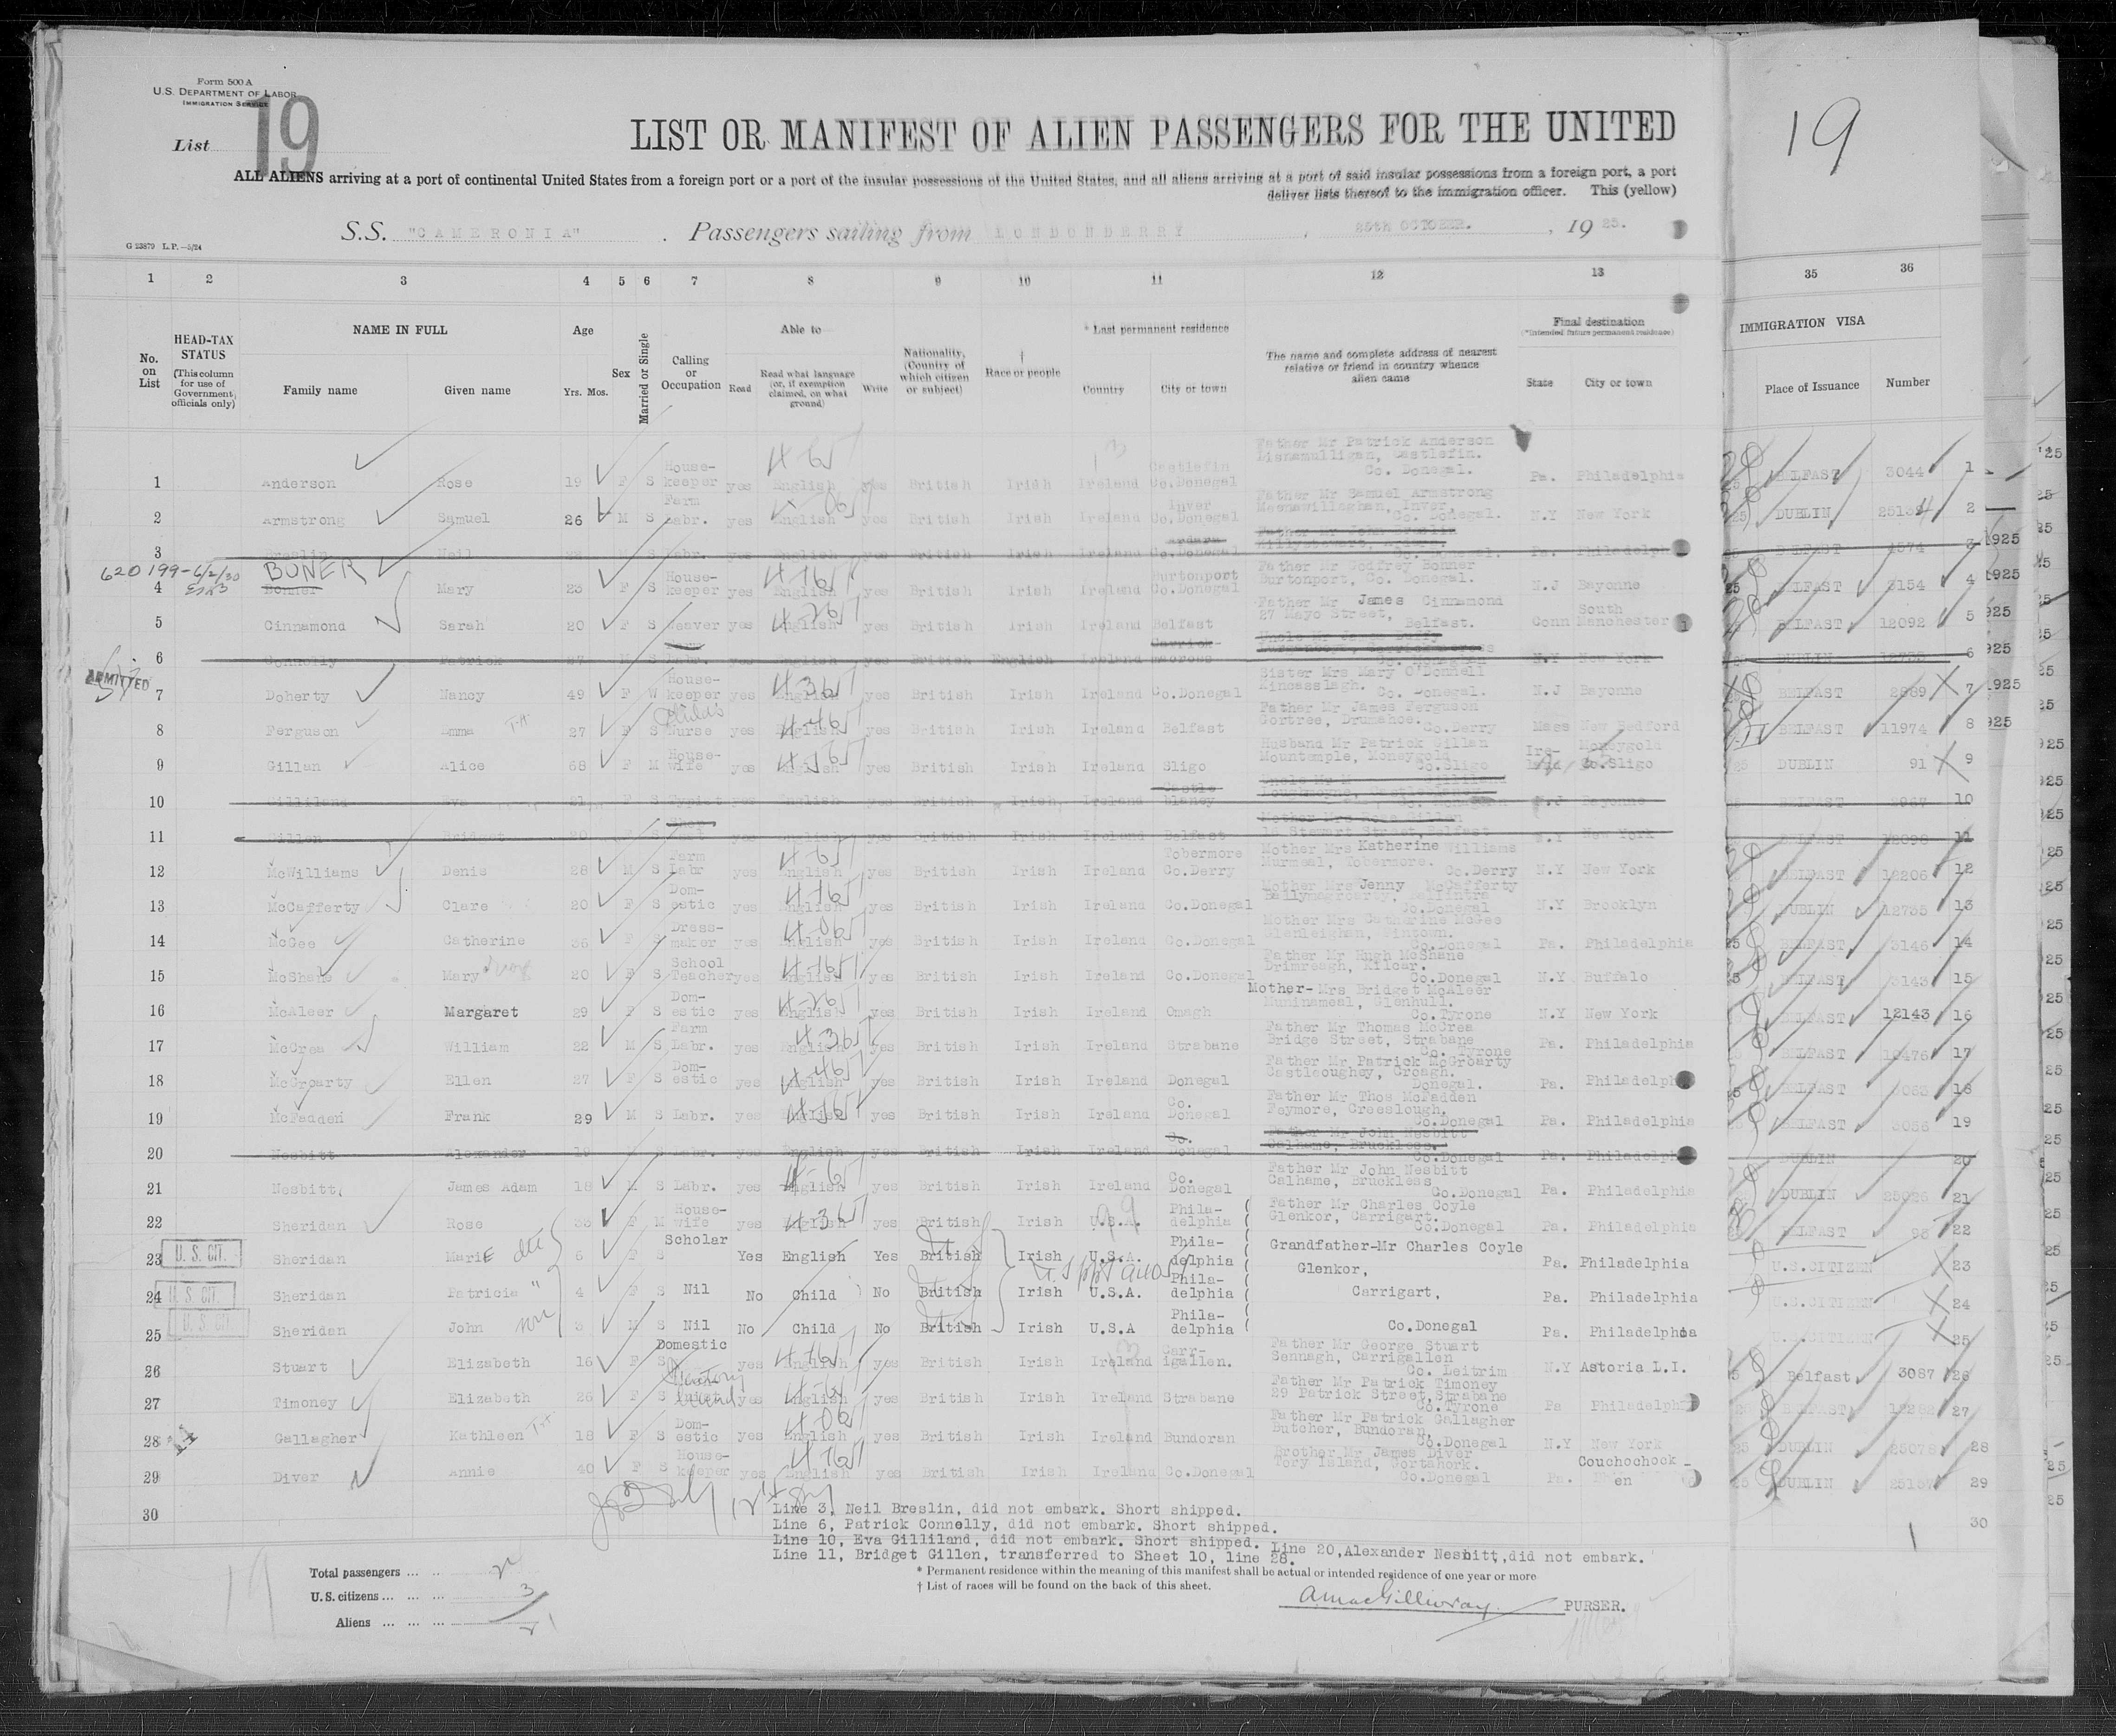 Form 500 A
U.S. DEPARTMENT OF LABOR
IMMIGRATION SERVICE
List 19
19
LIST OR MANIFEST OF ALIEN PASSENGERS FOR THE UNITED
ALL ALIENS arriving at a port of continental United States from a foreign port or a port of the insular possessions of the United States, and all aliens arriving at a port of said insular possessions from a foreign port, a port
deliver lists thereof to the immigration officer. This (yellow)
G 23879 L.P.—5/24
S.S. "CAMERONIA" . Passengers sailing from LONDONDERRY , 25th OCTOBER. , 19 25.
1 2 3 4 5 6 7 8 9 10 11 12 13 35 36
No. on List
HEAD-TAX STATUS (This column for use of Government officials only)
NAME IN FULL
Family name Given name
Age Yrs. Mos.
Sex
Married or Single
Calling or Occupation
Able to
Read Read what language (or, if exemption claimed, on what ground) Write
Nationality, (Country of which citizen or subject)
† Race or people
* Last permanent residence
Country City or town
The name and complete address of nearest relative or friend in country whence alien came
Final destination (*Intended future permanent residence)
State City or town
IMMIGRATION VISA
Place of Issuance Number
1 Anderson Rose 19 F S House-keeper yes English yes British Irish Ireland Castlefin Co.Donegal Father Mr Patrick Anderson Castlefin. Co. Donegal. Pa. Philadelphia BELFAST 3044 1
2 Armstrong Samuel 26 M S Farm Labr. yes English yes British Irish Ireland Inver Co.Donegal Father Mr Samuel Armstrong Inver. Co. Donegal. N.Y New York DUBLIN 2
3 Breslin Neil M S Labr. yes English yes British Irish Ireland Ardara Co.Donegal Pa. Philadelphia BELFAST 3
620199-6/2/30 BONER
4 Bonner Mary 23 F S House-keeper yes English yes British Irish Ireland Burtonport Co.Donegal Father Mr Godfrey Bonner Burtonport, Co. Donegal. N.J Bayonne BELFAST 3154 4
5 Cinnamond Sarah 20 F S Weaver yes English yes British Irish Ireland Belfast Father Mr James Cinnamond 27 Mayo Street, Belfast. Conn South Manchester BELFAST 12092 5
6 Connolly Patrick 27 M S Farm Labr. yes English yes British English Ireland N.Y New York DUBLIN 6
ADMITTED
7 Doherty Nancy 49 F W House-keeper yes English yes British Irish Ireland Co.Donegal Sister Mrs Mary O'Donnell Kincasslagh. Co. Donegal. N.J Bayonne BELFAST 2989 7
8 Ferguson Emma 27 F S Childs Nurse yes English yes British Irish Ireland Belfast Father Mr James Ferguson Gortree, Drumahoe. Co.Derry Mass New Bedford BELFAST 11974 8
9 Gillan Alice 68 F M House-wife yes English yes British Irish Ireland Sligo Husband Mr Patrick Gillan Mountemple, Moneygold Co.Sligo Ire-land Moneygold Co.Sligo DUBLIN 91 9
10 Gilliland Eva 21 F S Typist yes English yes British Irish Ireland Castle blaney N.J Bayonne BELFAST 2967 10
11 Gillen Bridget 20 S Shop yes English yes British Irish Ireland Belfast Stewart Street, Belfast N.Y New York BELFAST 12098 11
12 McWilliams Denis 28 M S Farm Labr yes English yes British Irish Ireland Tobermore Co.Derry Mother Mrs Katherine Williams Tobermore. Co.Derry N.Y New York BELFAST 12206 12
13 McCafferty Clare 20 F S Dom-estic yes English yes British Irish Ireland Co.Donegal Mother Mrs Jenny McCafferty Co.Donegal N.Y Brooklyn DUBLIN 12735 13
14 McGee Catherine 36 F S Dress-maker yes English yes British Irish Ireland Co.Donegal Mother Mrs Catherine McGee Glenleighan, Fintown. Co.Donegal Pa. Philadelphia BELFAST 3146 14
15 McShane Mary 20 F S School Teacher yes English yes British Irish Ireland Co.Donegal Father Mr Hugh McShane Drimreagh, Kilcar. Co.Donegal N.Y Buffalo BELFAST 3143 15
16 McAleer Margaret 29 F S Dom-estic yes English yes British Irish Ireland Omagh Mother-Mrs Bridget McAleer Muninameal, Glenhull. Co.Tyrone N.Y New York BELFAST 12143 16
17 McCrea William 22 M S Farm Labr. yes English yes British Irish Ireland Strabane Father Mr Thomas McCrea Bridge Street, Strabane Co. Tyrone Pa. Philadelphia BELFAST 17
18 McGroarty Ellen 27 F S Dom-estic yes English yes British Irish Ireland Donegal Father Mr Patrick McGroarty Castleoughey, Croagh. Donegal. Pa. Philadelphia BELFAST 3063 18
19 McFadden Frank 29 M S Labr. yes English yes British Irish Ireland Co. Donegal Father Mr Thos McFadden Feymore, Creeslough, Co.Donegal Pa. Philadelphia BELFAST 3056 19
20 Nesbitt Alexander 19 S Labr. yes English yes British Irish Ireland Co. Donegal Father Mr John Nesbitt Calhame, Bruckless. Co.Donegal Pa. Philadelphia DUBLIN 20
21 Nesbitt James Adam 18 M S Labr. yes English yes British Irish Ireland Co. Donegal Father Mr John Nesbitt Calhame, Bruckless Co.Donegal Pa. Philadelphia DUBLIN 25026 21
22 Sheridan Rose 33 F M House-wife yes English yes British Irish U.S.A. Phila-delphia Father Mr Charles Coyle Glenkor, Carrigart. Co.Donegal Pa. Philadelphia BELFAST 22
23 U.S. CIT. Sheridan MariE 6 F S Scholar Yes English Yes British Irish U.S.A. Phila-delphia Grandfather-Mr Charles Coyle Pa. Philadelphia U.S.CITIZEN 23
24 U.S. CIT. Sheridan Patricia " 4 F S Nil No Child No British Irish U.S.A. Phila-delphia Glenkor, Carrigart, Pa. Philadelphia U.S.CITIZEN 24
25 U.S. CIT. Sheridan John 3 M S Nil No Child No British Irish U.S.A Phila-delphia Co.Donegal Pa. Philadelphia U.S.CITIZEN 25
26 Stuart Elizabeth 16 F S Domestic yes English yes British Irish Ireland Carr-igallen. Father Mr George Stuart Sennagh, Carrigallen Co. Leitrim N.Y Astoria L.I. Belfast 3087 26
27 Timoney Elizabeth 26 F S yes English yes British Irish Ireland Strabane Father Mr Patrick Timoney 29 Patrick Street, Strabane Co.Tyrone Pa Philadelphia BELFAST 27
28 Gallagher Kathleen 18 F S Dom-estic yes English yes British Irish Ireland Bundoran Father Mr Patrick Gallagher Butcher, Bundoran, Co.Donegal N.Y New York DUBLIN 25078 28
29 Diver Annie 40 F S House-keeper yes English yes British Irish Ireland Co.Donegal Brother Mr James Diver Tory Island, Gortahork. Co.Donegal Pa. Couchochock-en DUBLIN 25157 29
30 30
Line 3, Neil Breslin, did not embark. Short shipped.
Line 6, Patrick Connelly, did not embark. Short shipped.
Line 10, Eva Gilliland, did not embark. Short shipped. Line 20, Alexander Nesbitt, did not embark.
Line 11, Bridget Gillen, transferred to Sheet 10, line 28.
* Permanent residence within the meaning of this manifest shall be actual or intended residence of one year or more
† List of races will be found on the back of this sheet.
Total passengers ... ..
U.S. citizens ... ... ... 3
Aliens ... ... ... 21
A MacGillivray. PURSER.